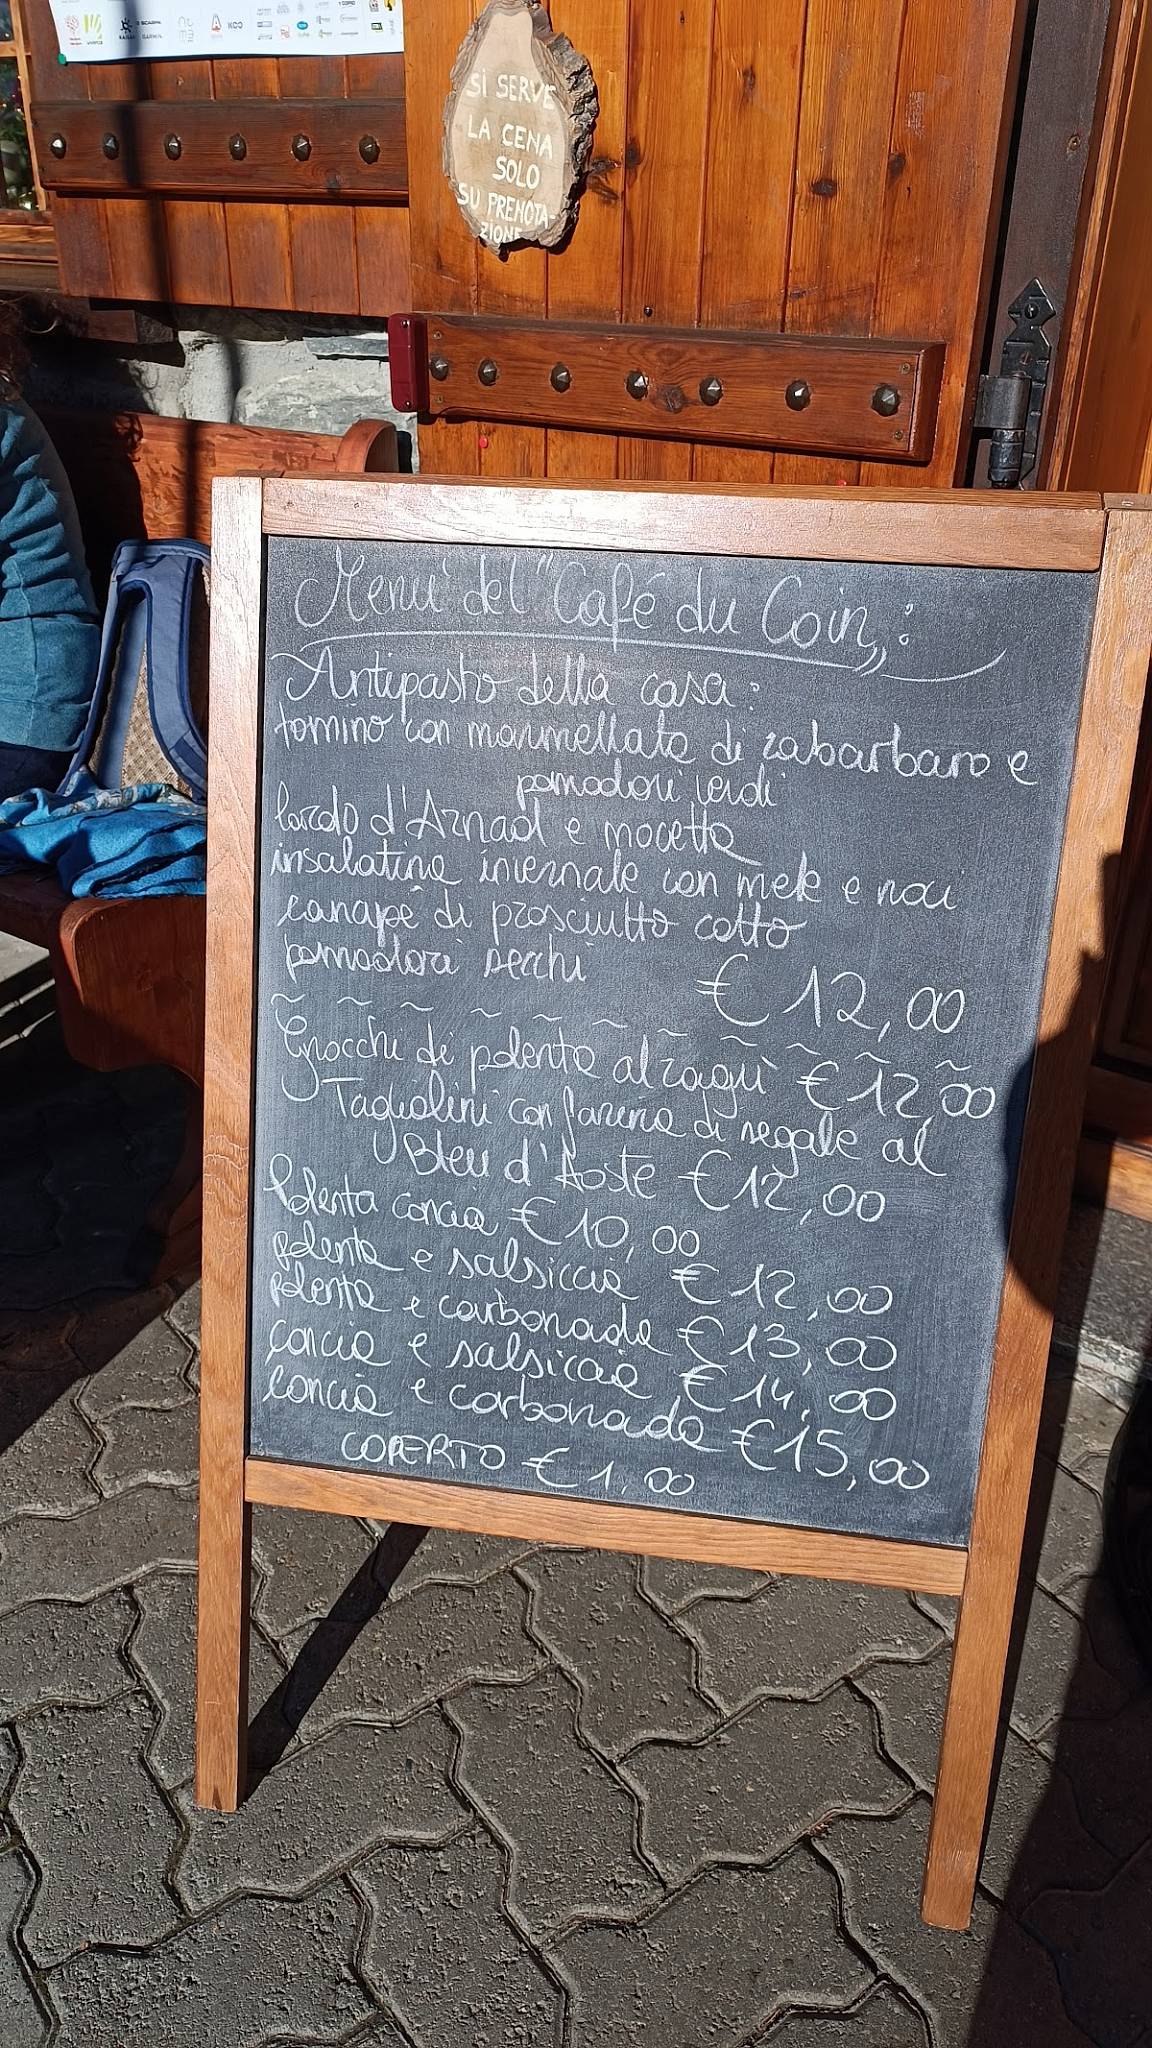 KARPOS
GARMIN
KCO
SÌ SERVE
LA CENA
SOLO
SU PRENOTA-
ZIONE
Menù del "Café du Coin„:
Antipasto della casa:
tomino con marmellata di rabarbaro e
pomodori verdi
lardo d'Arnad e mocetta
insalatina invernale con mele e noci
canapé di prosciutto cotto
pomodori secchi
€ 12,00
~ ~ ~ ~ ~ ~ ~ ~ ~ ~
Gnocchi di polenta al ragù € 12,00
Tagliolini con farina di segale al
Bleu d'Aoste € 12,00
Polenta concia € 10,00
polenta e salsiccia € 12,00
polenta e carbonada € 13,00
concia e salsiccia € 14,00
concia e carbonada € 15,00
COPERTO € 1,00